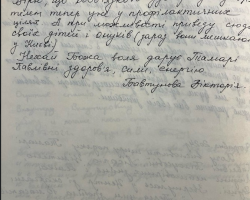 тілем тепер уже у профілактичних
цілях А при можливості приведу сюди
своїх дітей і онуків (зараз вони мешкают
у Києві)
Нехай Божа воля дарує Тамарі
Павлівні здоров'я, сили, енергію
Бовтунова Вікторія